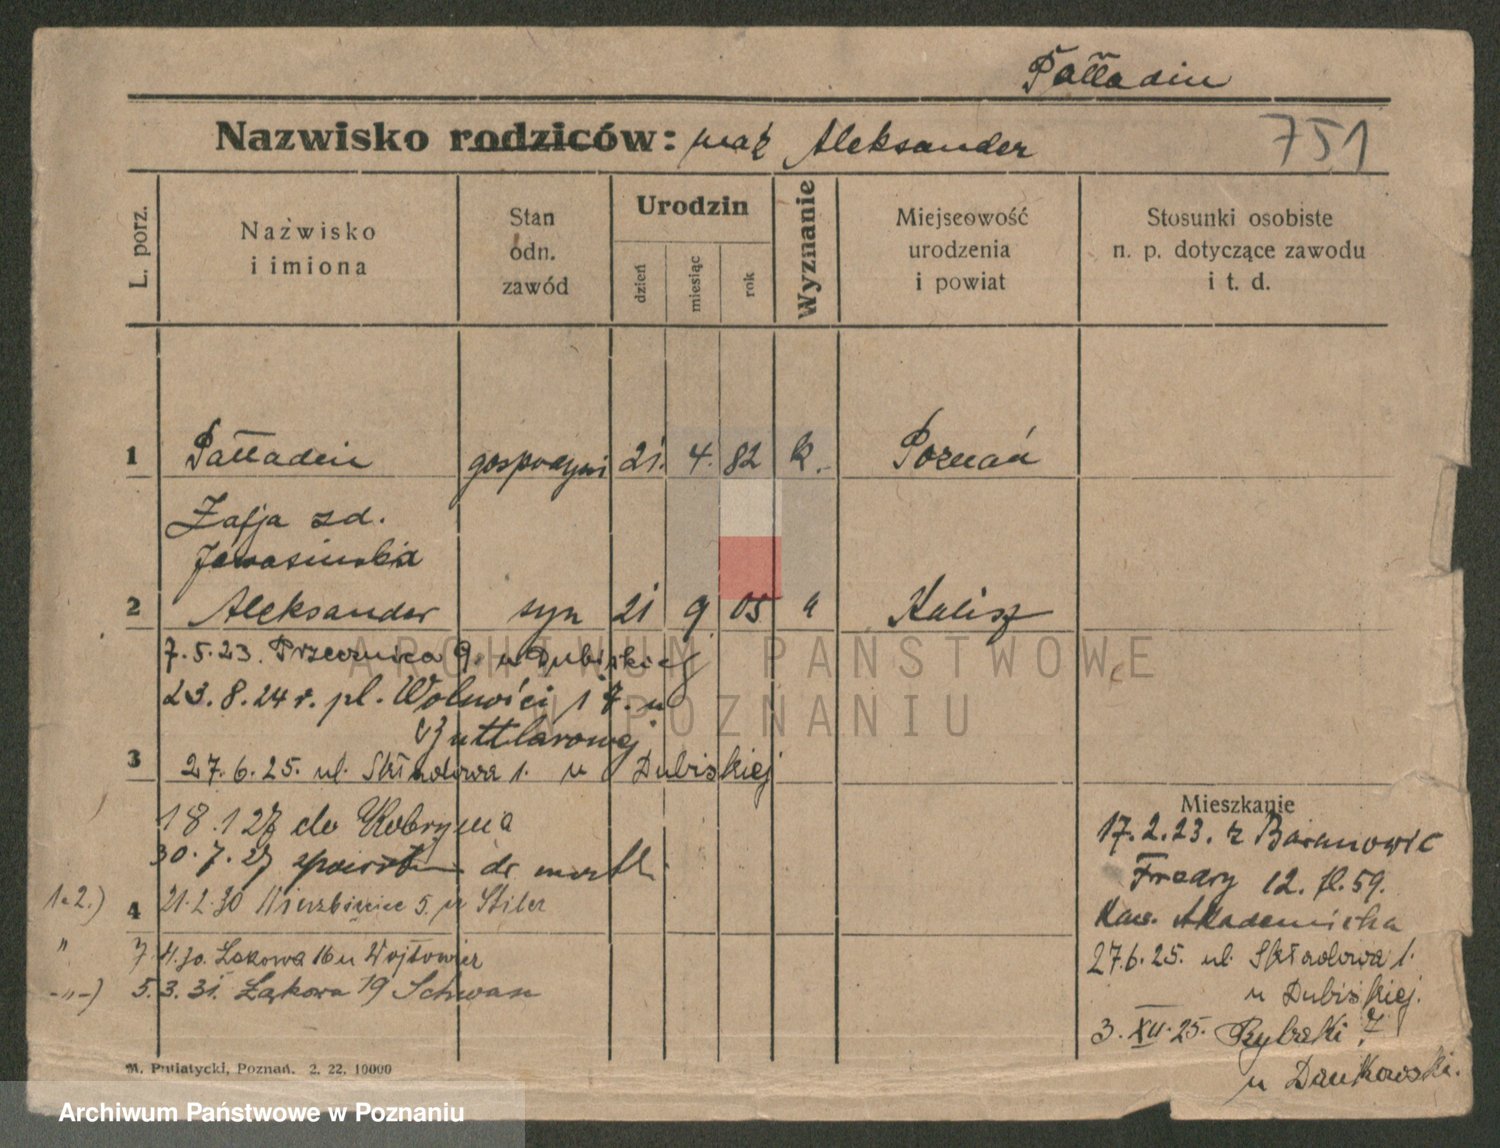 Pałładin
Nazwisko rodziców: mąż Aleksander 751
L. porz.
Nazwisko
i imiona
Stan
odn.
zawód
Urodzin
dzień
miesiąc
rok
Wyznanie
Miejscowość
urodzenia
i powiat
Stosunki osobiste
n. p. dotyczące zawodu
i t. d.
1 Pałładin gospodyni 21. 4. 82 k. Poznań
Zofja zd.
2 Aleksander syn 21 9 05 Kalisz
7.5.23. Przecznica 9. u Dubiskiej
23.8.24 r. pl. Wolności 17. u
Buttlarowej
3 27.6.25. ul. Składowa 1. u Dubiskiej
18.1 27 do Kobrynia
30.7.27
1.2.) 4 21.2.30 Wierzbięcice 5. u Stiler
" 7 4.30. Łąkowa 16 u Wojtowicz
-"-) 5.3.31. Łąkowa 19 Schwan
Mieszkanie
17.2.23. z Baranowic
Fredry 12. pl. 59.
Akademicka
27.6.25. ul. Składowa 1.
u Dubiskiej.
3.XII.25. Rybaki 7
u Dankowski.
M. Putiatycki, Poznań. 2. 22. 10000
ARCHIWUM PAŃSTWOWE
W POZNANIU
Archiwum Państwowe w Poznaniu